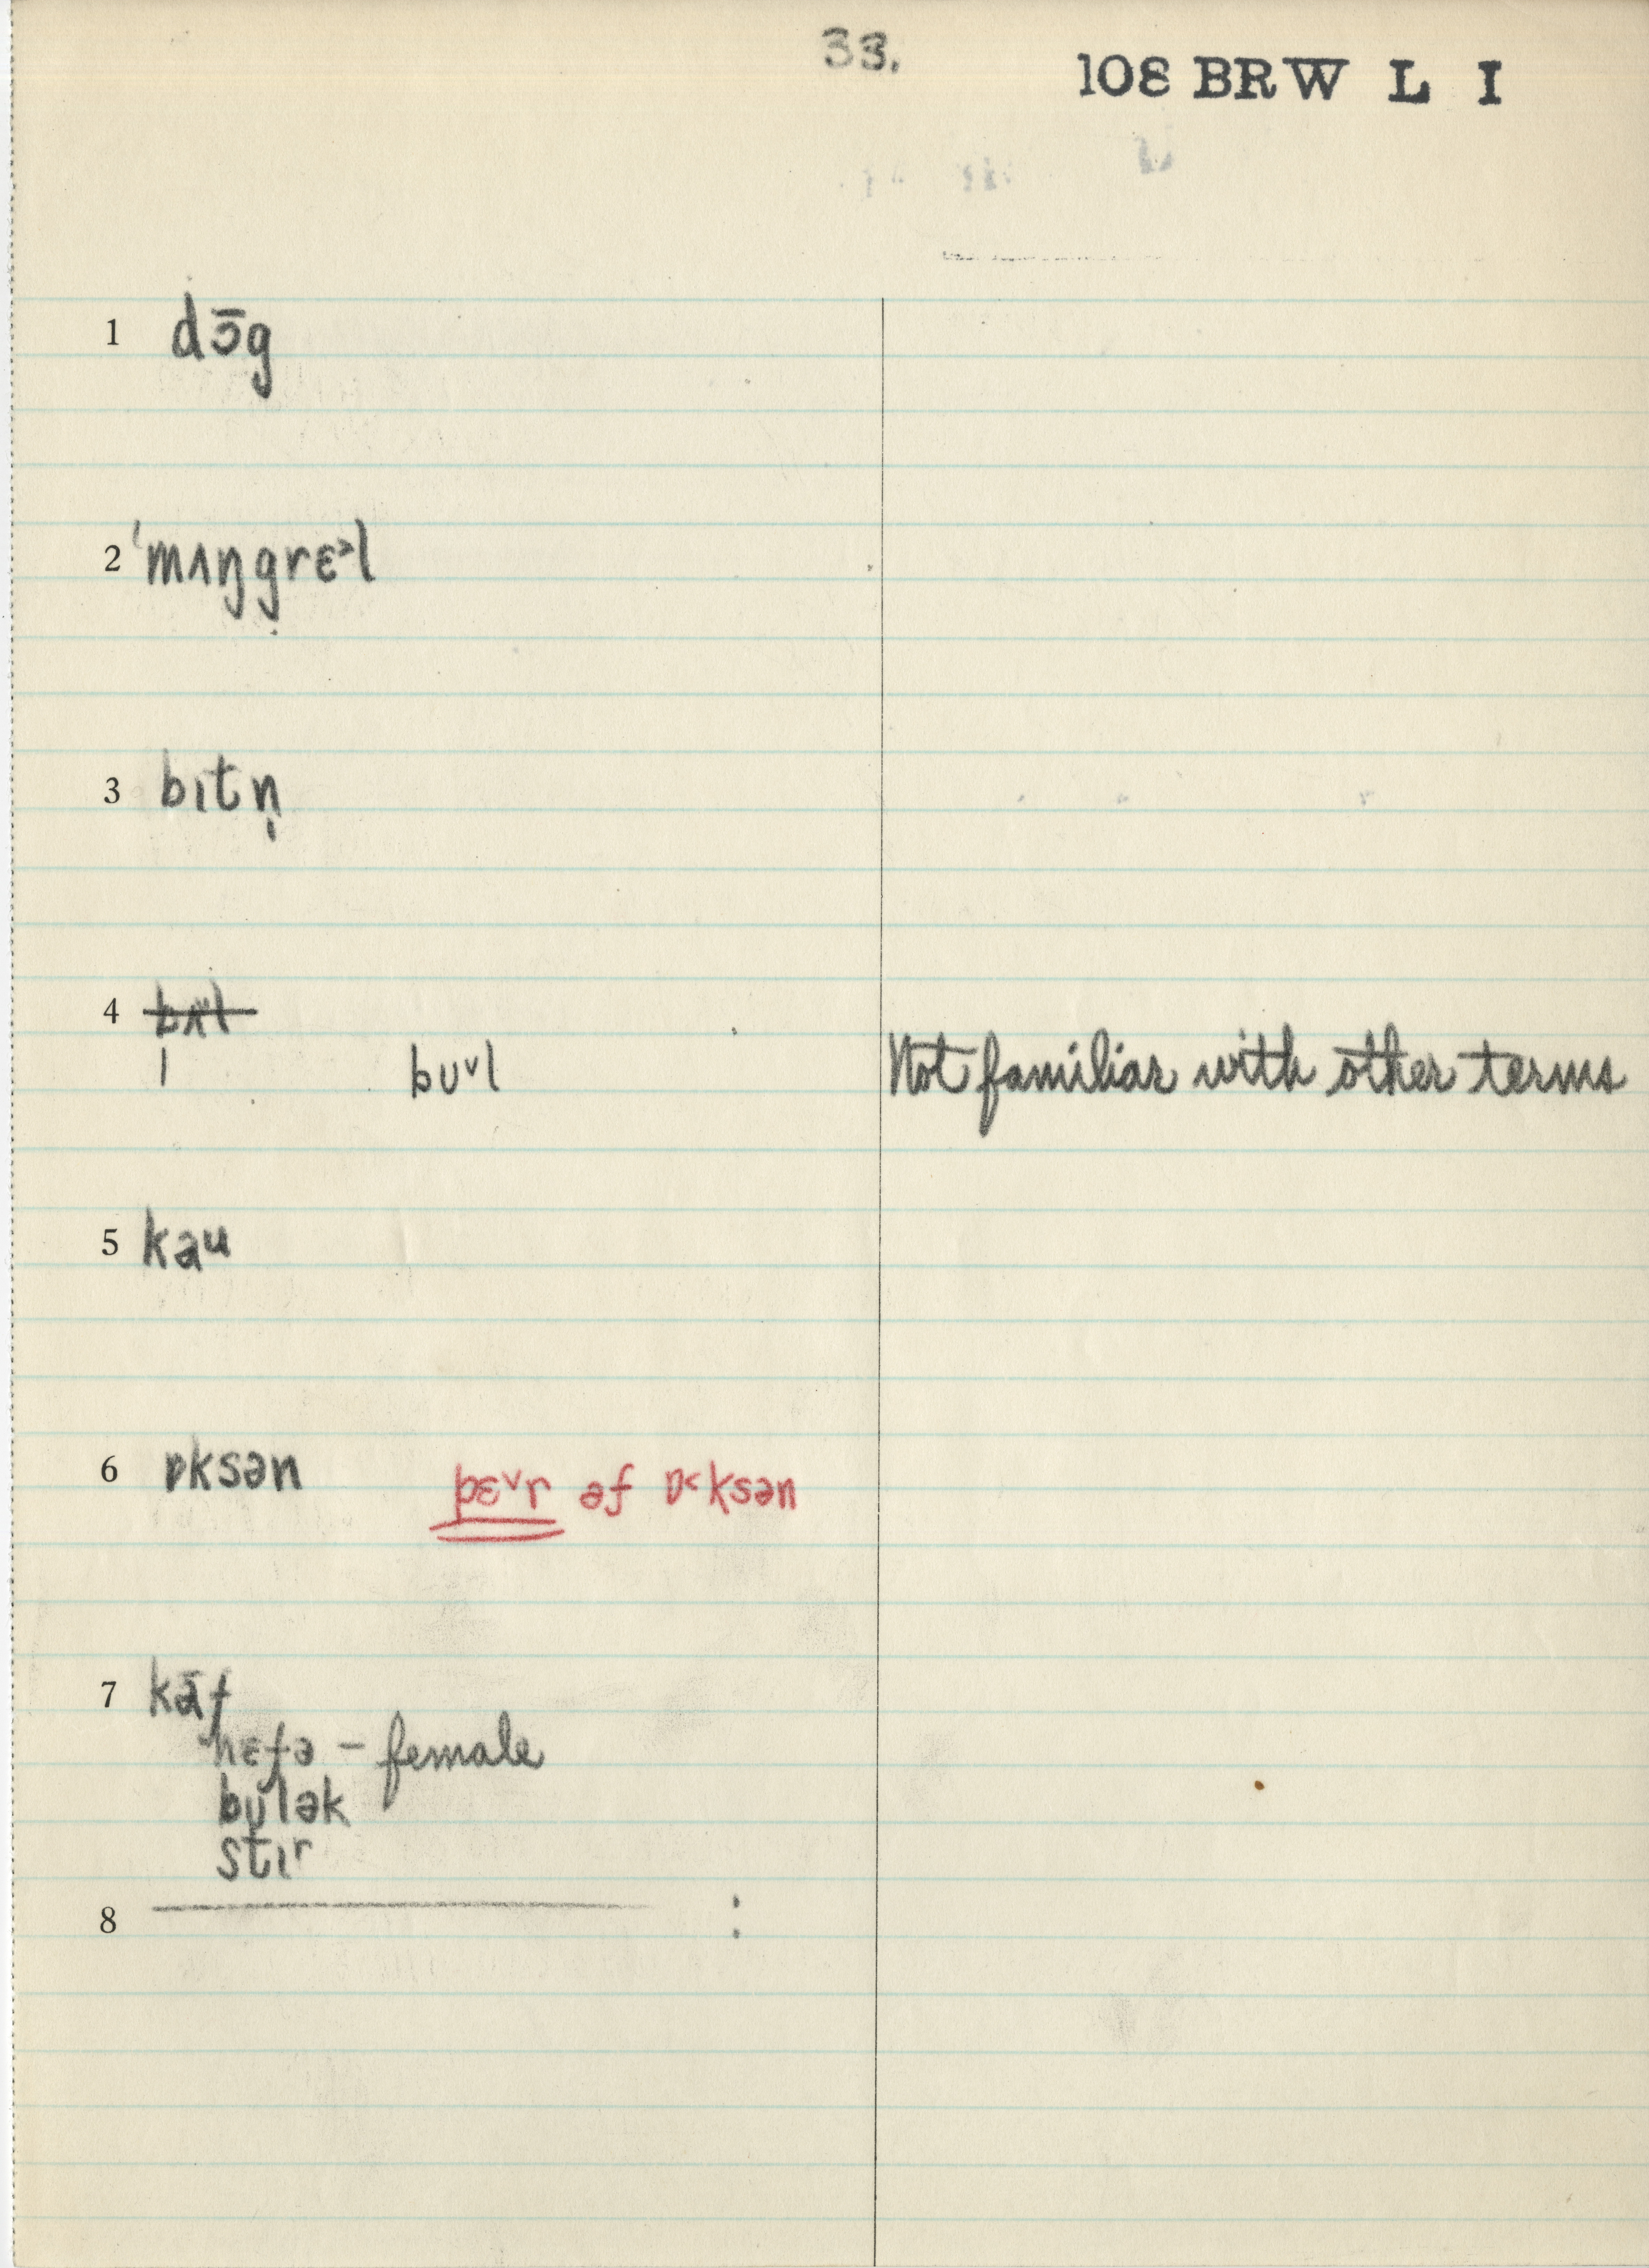 33.
108 BRW L I
1 dɔ̄g
2 ˈmʌŋgrɛ˃l
3 bɪtn̩
4
bʊ˅l Not familiar with other terms
5 kaʊ
6 ɒksən pɛ˅r əf ɒ˂ksən
7 kāf
hɛfə – female
bʊlək
stɪr
8